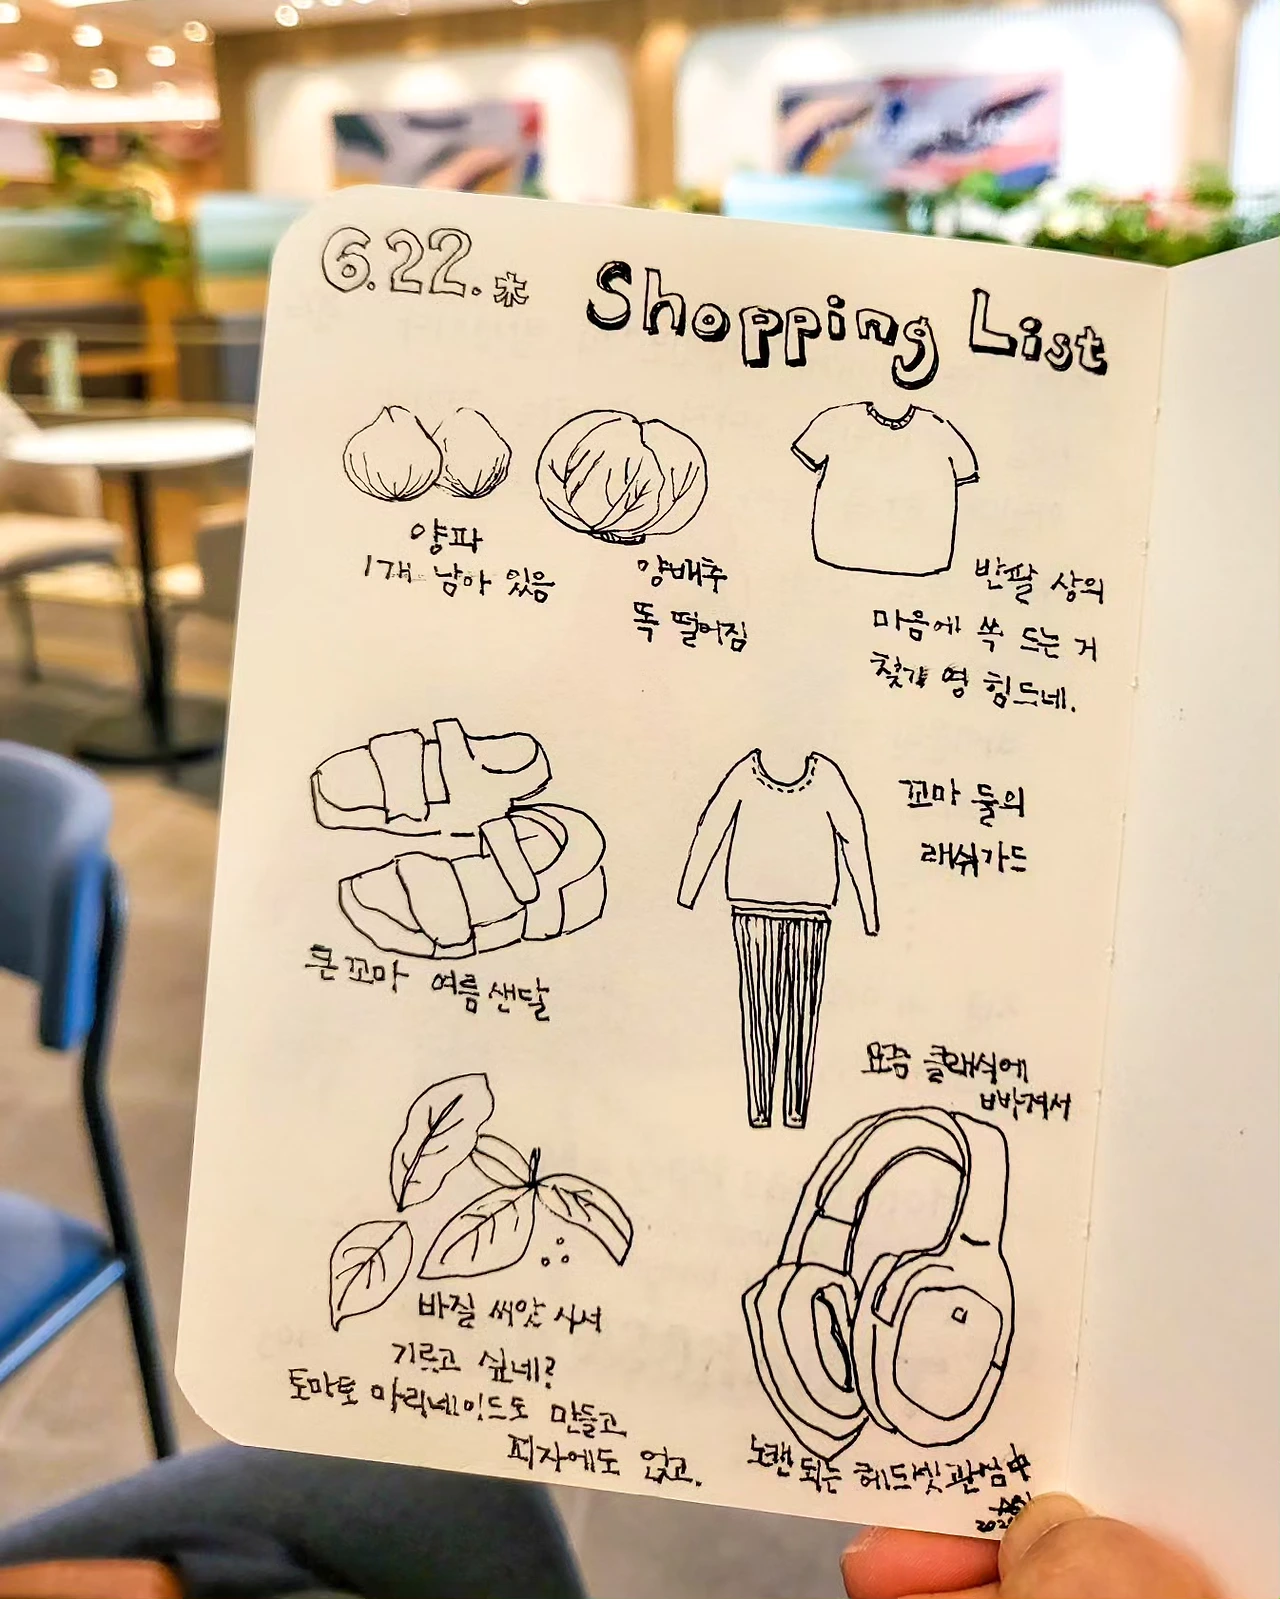 6.22.木
Shopping List
양파
1개 남아 있음
양배추
똑 떨어짐
반팔 상의
마음에 쏙 드는 거
찾기 영 힘드네.
큰꼬마 여름 샌달
꼬마 둘의
래쉬가드
요즘 클래식에
빠져서
바질 씨앗 사셔
기르고 싶네?
토마토 마리네이드도 만들고
피자에도 얹고.
노캔 되는 헤드셋 관심中